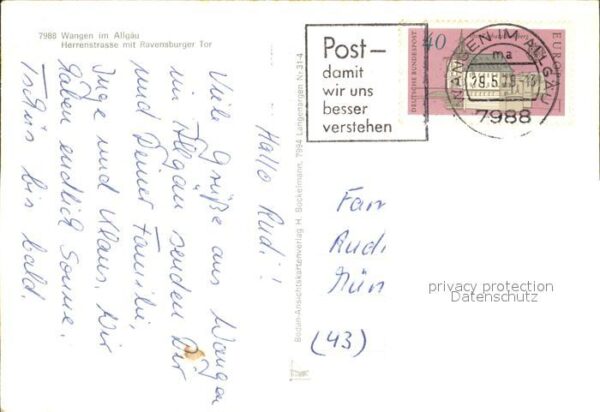 7988 Wangen im Allgäu
Herrenstrasse mit Ravensburger Tor
Hallo Rudi!
Viele Grüße aus Wangen
im Allgäu senden Dir
und Deiner Familie,
Inge und Klaus. Wir
haben endlich Sonne.
Tschüs bis bald.
Bodan-Ansichtskartenverlag H. Bockelmann, 7994 Langenargen Nr. 31-4
Post-
damit
wir uns
besser
verstehen
DEUTSCHE BUNDESPOST
40
EUROPA
WANGEN IM ALLGÄU
ma
7988
Fam
Rudi
Mün
(43)
privacy protection
Datenschutz